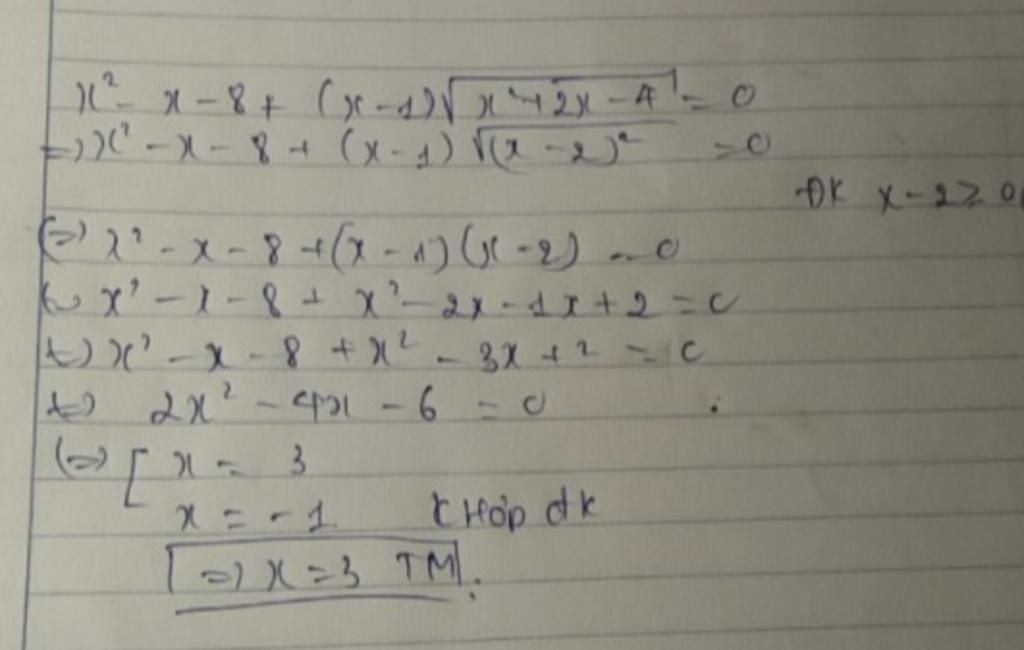 x² - x - 8 + (x - 1)√x² + 2x - 4 = 0
=> x² - x - 8 + (x - 1)√(x - 2)² = 0
ĐK x - 2 ≥ 0
<=> x² - x - 8 + (x - 1)(x - 2) = 0
<=> x² - x - 8 + x² - 2x - 1x + 2 = 0
<=> x² - x - 8 + x² - 3x + 2 = 0
<=> 2x² - 4x - 6 = 0
<=> [ x = 3
x = -1 K Hợp đk
=> x = 3 TM.